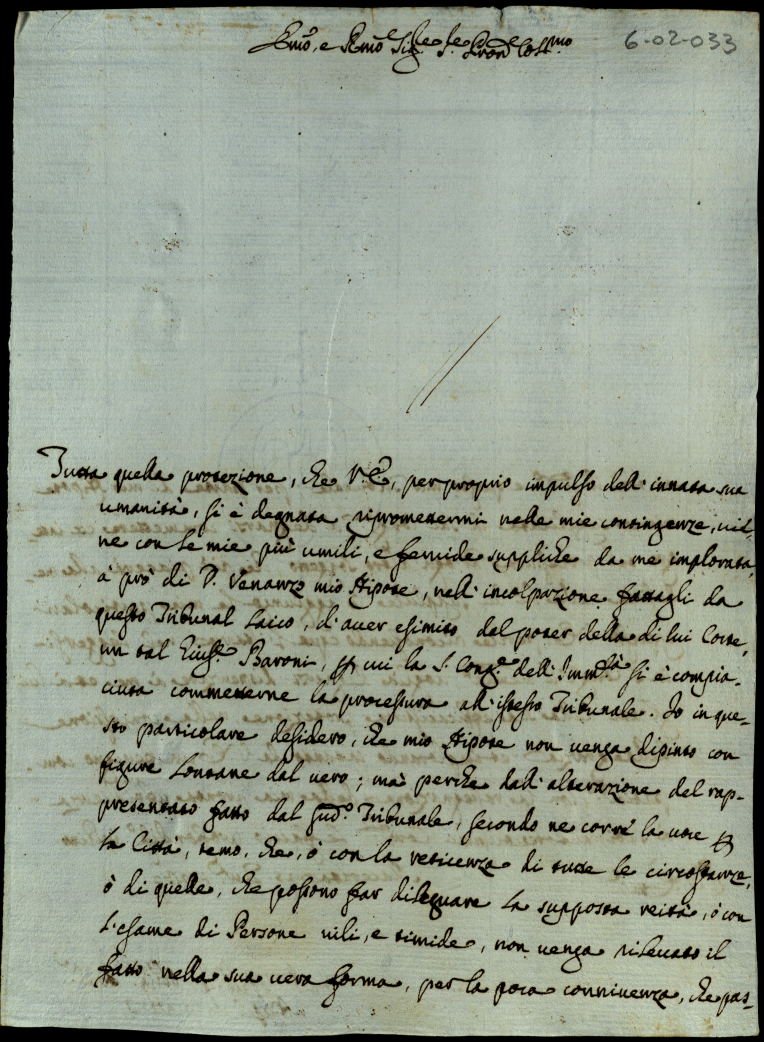 Em̃o, e Rm̃o Sig.re S.re Pron̄e Col.mo
6-02-033
Tutta quella protezione, che V. E., per proprio impulso dell'innata sua
umanità, si è degnata ripromettermi nelle mie contingenze, vie-
ne con le mie più umili, e fervide suppliche da me implorata,
à prò di D. Venanzo mio Nipote, nell'incolpazione fattagli da
questo Tribunal Laico, d'aver esimito dal poter della di lui Corte,
un tal Baroni, ꝑ cui la S. Cong.e dell'Imm.tà si è compia-
ciuta commetterne la processura all'istesso Tribunale. Io in que-
sto particolare desidero, che mio Nipote non venga dipinto con
figure lontane dal vero; mà perche dall'alterazione del rap-
presentato fatto dal sud.o Tribunale, secondo ne corre la voce ꝑ
la Città, temo, che, ò con la reticenza di tutte le circostanze,
ò di quelle, che possono far dileguare la supposta reità, ò con
l'esame di Persone vili, e timide, non venga rilevato il
fatto nella sua vera forma, per la poca connivenza, che pas-